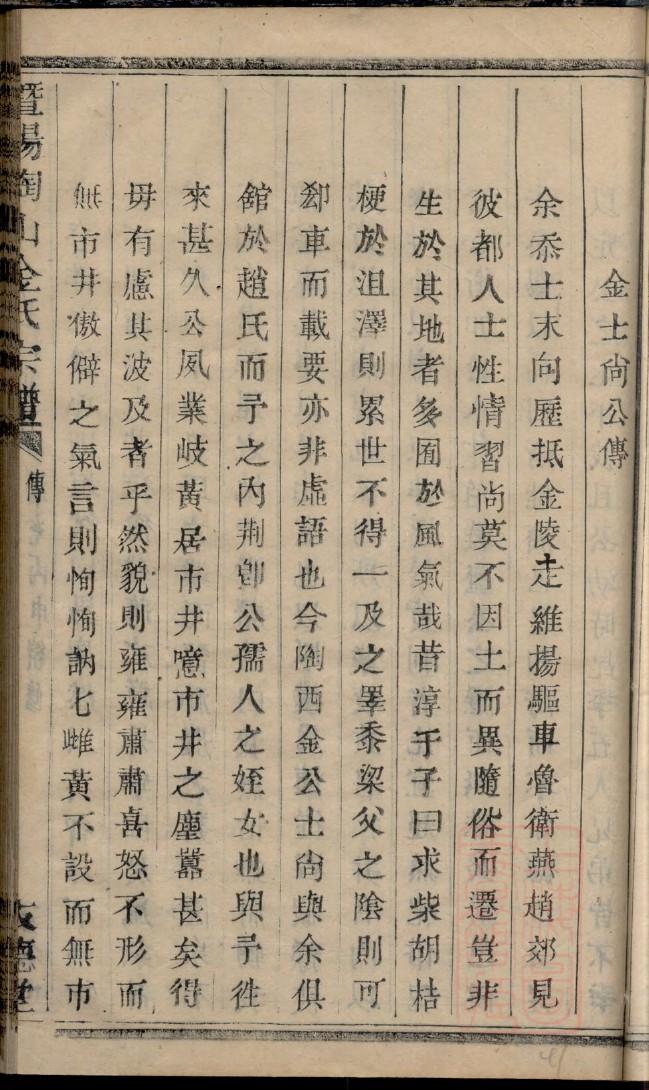 金士尙公傳
余忝士末向歷抵金陵走維揚驅車魯衛燕趙郊見
彼都人士性情習尙莫不因土而異隨俗而遷豈非
生於其地者多囿於風氣哉昔淳于子曰求柴胡桔
梗於沮澤則累世不得一及之睪黍梁父之陰則可
郄車而載要亦非虛語也今陶西金公士尙與余俱
舘於趙氏而予之內荆卽公孺人之姪女也與予徃
來甚久公夙業岐黃居市井噫市井之塵囂甚矣得
毋有慮其波及者乎然貌則雍雍肅肅喜怒不形而
無市井傲僻之氣言則恂恂訥匕雌黃不設而無市
暨陽陶山金氏宗譜
傳
友德堂